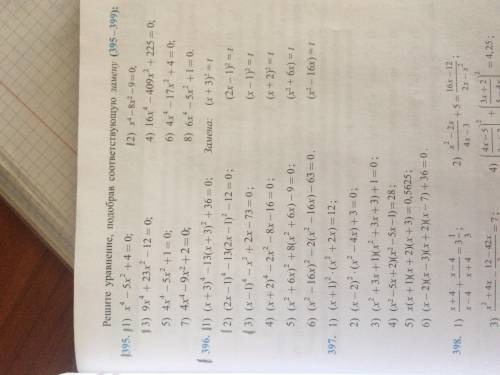 Решите уравнение, подобрав соответствующую замену (395–399):
395. 1) x⁴ – 5x² + 4 = 0; 2) x⁴ – 8x² – 9 = 0;
3) 9x⁴ + 23x² – 12 = 0; 4) 16x⁴ – 409x² + 225 = 0;
5) 4x⁴ – 5x² + 1 = 0; 6) 4x⁴ – 17x² + 4 = 0;
7) 4x⁴ – 9x² + 2 = 0; 8) 6x⁴ – 5x² + 1 = 0.
396. 1) (x + 3)⁴ – 13(x + 3)² + 36 = 0; Замена: (x + 3)² = t
2) (2x – 1)⁴ – 13(2x – 1)² – 12 = 0; (2x – 1)² = t
3) (x – 1)⁴ – x² + 2x – 73 = 0; (x – 1)² = t
4) (x + 2)⁴ – 2x² – 8x – 16 = 0; (x + 2)² = t
5) (x² + 6x)² + 8(x² + 6x) – 9 = 0; (x² + 6x) = t
6) (x² – 16x)² – 2(x² – 16x) – 63 = 0. (x² – 16x) = t
397. 1) (x + 1)² · (x² + 2x) = 12;
2) (x – 2)² · (x² – 4x) + 3 = 0;
3) (x² + 3x + 1)(x² + 3x + 3) + 1 = 0;
4) (x² – 5x + 2)(x² – 5x – 1) = 28;
5) x(x + 1)(x + 2)(x + 3) = 0,5625;
6) (x – 2)(x – 3)(x + 2)(x – 7) + 36 = 0.
398. 1) (x + 4)/(x – 4) + (x – 4)/(x + 4) = 3 1/3; 2) (x² – 2x)/(4x – 3) + 5 = (16x – 12)/(2x – x²);
3) (x² + 4x) (12 – 42x) = 7; 4) ((4x – 5) )² + ((3x + 2) )² = 4,25;